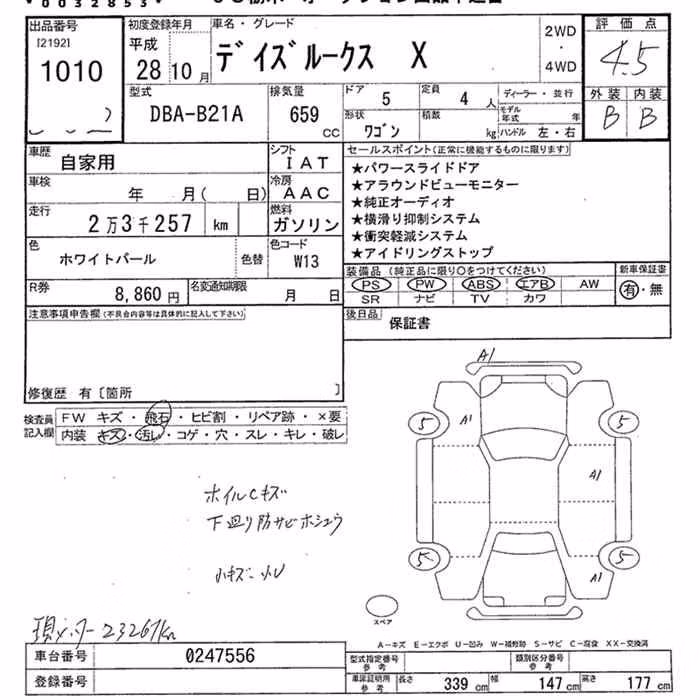 0032853
出品番号 初度登録年月 車名・グレード 評価点
[2192] 平成 デイズルークス X 2WD・4WD 4.5
1010 28年10月 外装 内装
型式 排気量 ドア 5 定員 4人 ディーラー・並行 B B
DBA-B21A 659cc 形状 ワゴン 積数 kg モデル年式 年
ハンドル 左・右
車歴 自家用 シフト IAT セールスポイント(正常に機能するものに限ります)
車検 年 月( 日) 冷房 AAC ★パワースライドドア
走行 2万3千257 km 燃料 ガソリン ★アラウンドビューモニター
★純正オーディオ
★横滑り抑制システム
色 ホワイトパール 色替 色コード W13 ★衝突軽減システム
★アイドリングストップ
R券 8,860円 名変通知期限 月 日 装備品(純正品に限り○をつけてください) 新車保証書
PS PW ABS エアB AW 有・無
SR ナビ TV カワ
注意事項申告欄(不具合内容等は具体的に記入して下さい) 後日品 保証書
修復歴 有〔箇所 〕
検査員記入欄 FW キズ・飛石・ヒビ割・リペア跡・×要
内装 キズ・汚レ・コゲ・穴・スレ・キレ・破レ
A1
5 A1 5
A1
5 A1 5
ホイルCキズ
下廻り防サビホシュウ
小キズ・小U
スペア
現メーター23267km
A-キズ E-エクボ U-凹み W-補修跡 S-サビ C-腐食 XX-交換済
車台番号 0247556 型式指定番号 参考 類別区分番号 参考
登録番号 車庫証明用 参考 長さ 339cm 幅 147cm 高さ 177cm